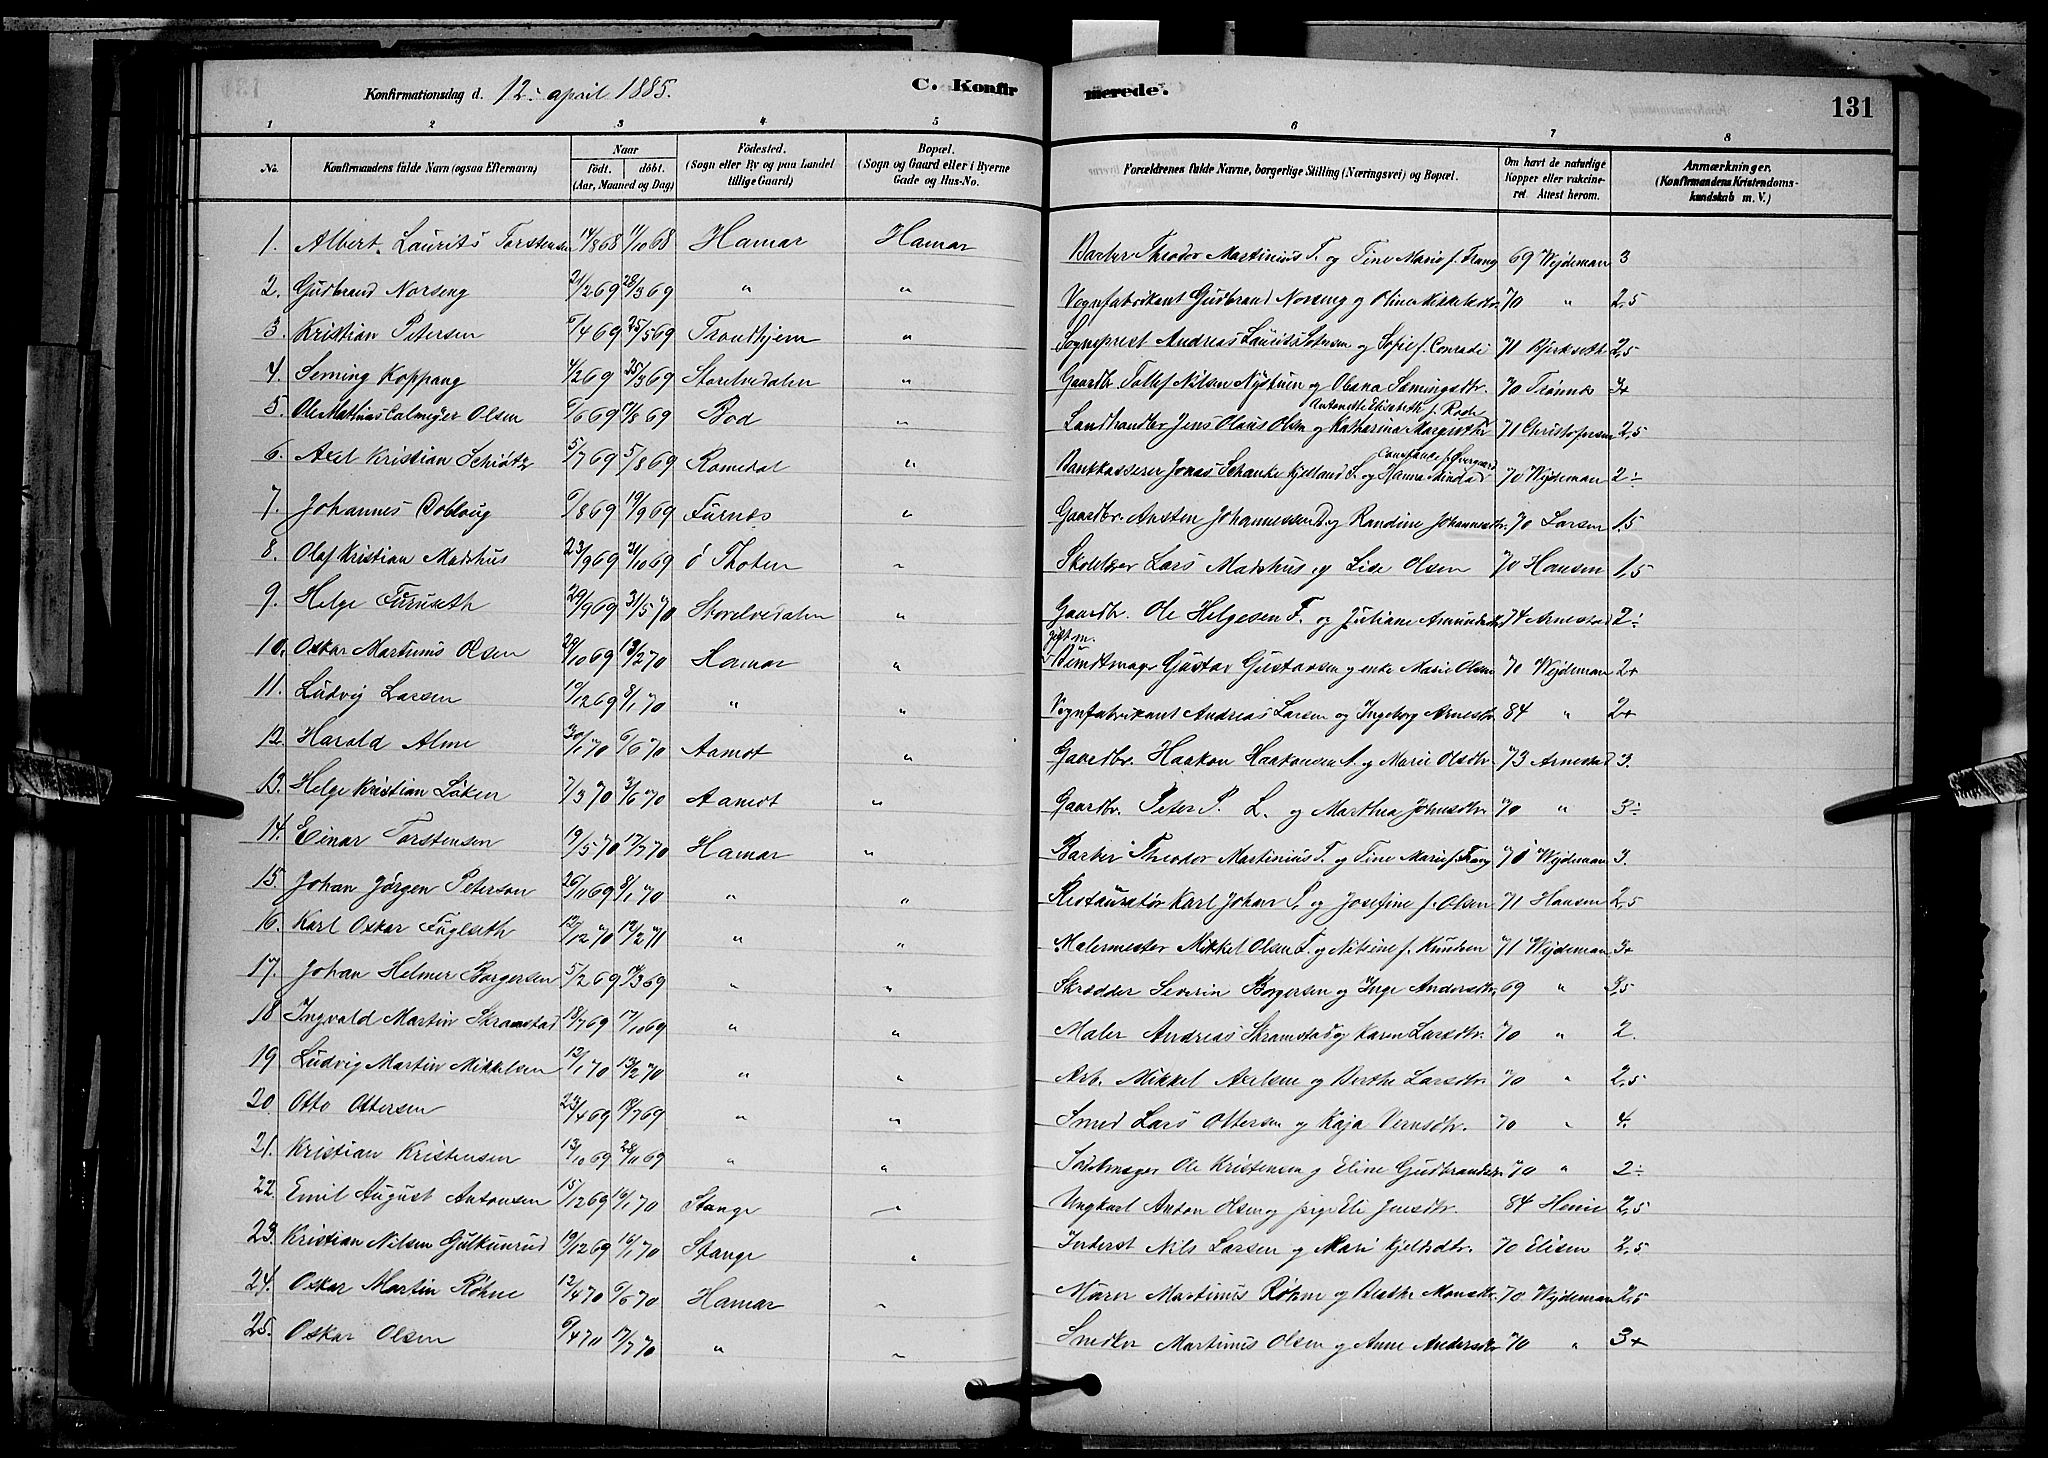 Konfirmationsdag d. 12. april 1885.
C. Konfirmerede.
131
1 2 3 4 5 6 7 8
No. Konfirmandens fulde Navn (ogsaa Efternavn) Naar født. døbt. (Aar, Maaned og Dag) Fødested. (Sogn eller By og paa Landet tillige Gaard) Bopæl. (Sogn og Gaard eller i Byerne Gade og Hus-No. Forældrenes fulde Navne, borgerlige Stilling (Næringsvei) og Bopæl. Om havt de naturlige Kopper eller vakcineret. Attest herom. Anmærkninger. (Konfirmandens Kristendomskundskab m. V.)
1. Albert Laurits Torstensen 14/8 68 11/10 68 Hamar Hamar Barber Theodor Martinius T. og Tine Marie f. Frang 69 Wejdeman 3
2. Gudbrand Norseng 21/2 69 28/3 69 " " Vognfabrikant Gudbrand Norseng og Olina 70 " 2,5
3. Kristian Petersen 6/4 69 25/5 69 Trondhjem " Sogneprest Andreas Laurits og Sofie f. Conradi 71 Bjerkseth 2,5
4. Seming Koppang 4/2 69 25/3 69 Storelvedalen " Gaardbr. Tollef Nilsen Nystuen og Olsen Semingsdtr. 70 Trønnes 3+
5. Ole Mathias Calmeyer Olsen 6/6 69 /8 69 Bod " Landhandler Jens Olaus Olsen og Katharina Margrethe Antonette Elisabeth f. Rode 71 Christophersen 2,5
6. Axel Kristian Schiøtz 5/7 69 5/8 69 Romedal " Bankkasserer Jonas Schanke Kjelland S. og Hanna Minda Constance f. Overgaard 70 Wejdeman 2÷
7. Johannes Dobloug 6/8 69 19/9 69 Furnes " Gaardbr. Austen Johannessen D. og Randine Johannesdtr. 70 Larsen 1,5
8. Olaf Kristian Madshus 23/9 69 31/10 69 Ø Thoten " Skolelærer Lars Madshus og Lise Olsen 70 Hansen 1,5
9. Helge Furuseth 29/9 69 31/5 70 Storelvedalen " Gaardbr. Ole Helgesen F. og Juliane Amundsdtr. 74 Arnestad 2÷
10. Oskar Martinius Olsen 28/10 69 13/2 70 Hamar " gift m. Bundtmager Gustav Gustavsen og enke Marie Olsen 70 Wejdeman 2+
11. Ludvig Larsen 10/12 69 8/1 70 " " Vognfabrikant Andreas Larsen og Ingeborg Arnesdtr. 84 " 2+
12. Harald Alme 30/1 70 6/6 70 Aamot " Gaardbr. Haakon Haakonsen A. og Marie Olsdtr. 73 Arnestad 3.
13. Helge Kristian Løken 7/3 70 3/6 70 Aamot " Gaardbr. Peter P. L. og Marthea Johnsdtr. 70 " 3÷
14. Einar Torstensen 19/5 70 17/7 70 Hamar " Barber Theodor Martinius T. og Tine Marie f. Frang 70 Wejdeman 3.
15. Johan Jørgen Peterson 26/11 69 8/1 70 " " Restauratør Karl Johan P. og Josefine f. Olsen 71 Hansen 2,5
16. Karl Oskar Fuglseth 12/12 70 12/2 71 " " Malermester Mikkel Olsen F. og Nikoline f. Knudsen 71 Wejdeman 3+
17. Johan Helmer Borgersen 5/2 69 14/3 69 " " Skrædder Severin Borgersen og Inge Andersdtr. 69 " 3,5
18. Ingvald Martin Skramstad 18/7 69 17/10 69 " " Maler Andreas Skramstad og Karen Larsdtr. 70 " 2.
19. Ludvig Martin Mikkelsen 12/1 70 13/2 70 " " Arb. Mikkel Axelsen og Berthe Larsdtr. 70 " 2,5
20. Otto Ottersen 23/4 69 18/7 69 " " Smed Lars Ottersen og Kaja Vernsdtr. 70 " 4.
21. Kristian Kristensen 13/10 69 28/11 69 " " Ole Kristensen og Eline Gudbrandsdtr. 70 " 2÷
22. Emil August Antonsen 15/12 69 16/1 70 Stange " Ungkarl Anton Olsen og pige Eli Jensdtr. 84 Heine 2,5
23. Kristian Nilsen Gulkunrud 19/12 69 16/1 70 Stange " Inderst Nils Larsen og Mari Kjelsdtr. 70 Elisen 2,5
24. Oskar Martin Røhne 12/4 70 6/6 70 Hamar " Murer Martinus Røhne og Beathe Monsdtr. 70 Wejdeman 2,5
25. Oskar Olsen 6/4 70 17/7 70 " " Snedker Martinus Olsen og Anne Andersdtr. 70 " 3+